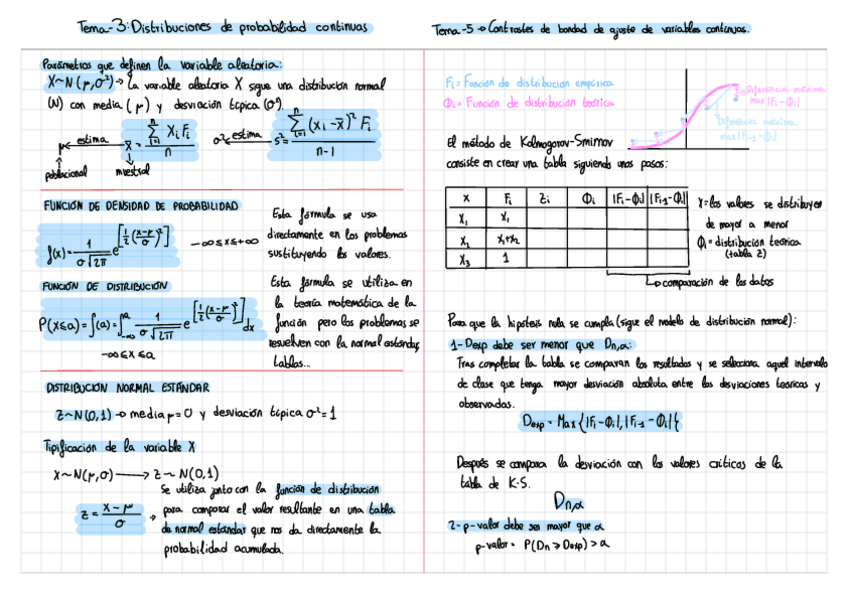 Tema-3: Distribuciones de probabilidad continuas
Parámetros que definen la variable aleatoria:
X~N(μ,σ²)→ La variable aleatoria X sigue una distribución normal
(N) con media (μ) y desviación típica (σ²).
μ ← estima x̄ = Σ(i=1 → n) Xi Fi / n    σ² ← estima s² = Σ(i=1 → n) (xi - x̄)² Fi / n-1
poblacional    muestral
FUNCIÓN DE DENSIDAD DE PROBABILIDAD
f(x) = 1/(σ√2π) e^[½((x-μ)/σ)²]   -∞≤x≤+∞
Esta fórmula se usa
directamente en los problemas
sustituyendo los valores.
FUNCIÓN DE DISTRIBUCIÓN
P(x≤a) = ∫(a) = ∫(-∞ → a) 1/(σ√2π) e^[½((x-μ)/σ)²] dx
-∞≤x≤a
Esta fórmula se utiliza en
la teoría matemática de la
función pero los problemas se
resuelven con la normal estándar,
tablas...
DISTRIBUCIÓN NORMAL ESTÁNDAR
Z~N(0,1) → media μ=0 y desviación típica σ²=1
Tipificación de la variable X
X~N(μ,σ) → Z~N(0,1)
Z = (x-μ)/σ →
Se utiliza junto con la función de distribución
para comparar el valor resultante en una tabla
de normal estándar que nos da directamente la
probabilidad acumulada.
Tema-5 → Contrastes de bondad de ajuste de variables continuas.
Fi = Función de distribución empírica
Φi = Función de distribución teórica
Diferencia máxima
max |Fi-Φi|
Diferencia máxima
max |Fi-1-Φi|
El método de Kolmogorov-Smirnov
consiste en crear una tabla siguiendo unos pasos:
X Fi Zi Φi |Fi-Φi| |Fi-1-Φi|
X1 X1
X2 X1+X2
X3 1
X=los valores se distribuyen
de mayor a menor
Φi = distribución teórica
(tabla Z)
→ comparación de los datos
Para que la hipótesis nula se cumpla (sigue el modelo de distribución normal):
1- Dexp debe ser menor que Dn,α:
Tras completar la tabla se comparan los resultados y se selecciona aquel intervalo
de clase que tenga mayor desviación absoluta entre las desviaciones teóricas y
observadas.
Dexp = Max{|Fi-Φi|,|Fi-1-Φi|}
Después se compara la desviación con los valores críticos de la
tabla de K-S.
Dn,α
2- p-valor debe ser mayor que α
p-valor = P(Dn ≥ Dexp) > α